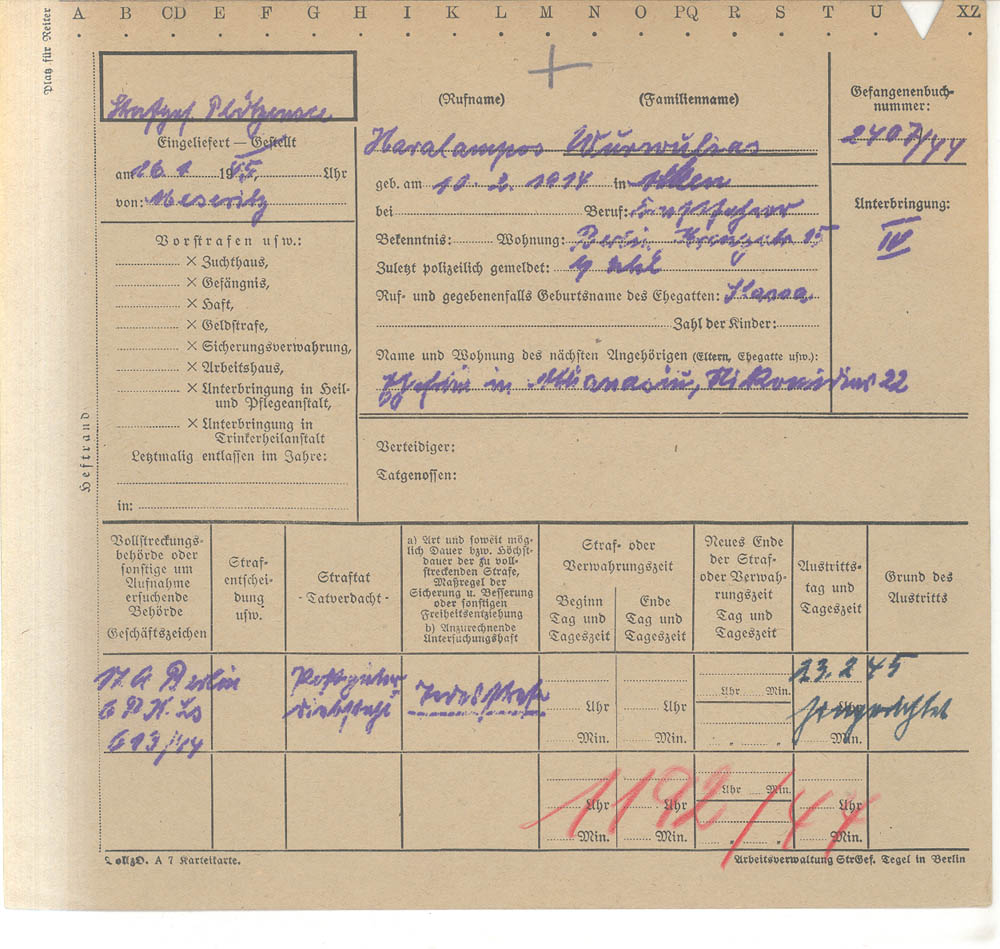 A B CD E F G H I K L M N O PQ R S T U XZ
Platz für Reiter
Heftrand
Strafgef. Plötzensee
Eingeliefert — Gestellt
am 16 1 1945, Uhr
von: Meseritz
Vorstrafen usw.:
× Zuchthaus,
× Gefängnis,
× Haft,
× Geldstrafe,
× Sicherungsverwahrung,
× Arbeitshaus,
× Unterbringung in Heil-
und Pflegeanstalt,
× Unterbringung in
Trinkerheilanstalt
Letztmalig entlassen im Jahre:
in:
(Rufname) (Familienname)
Haralampos Wurwulias
geb. am 10. 2. 1914 in Athen
bei Beruf:
Bekenntnis: Wohnung: Berlin 15
Zuletzt polizeilich gemeldet:
Ruf- und gegebenenfalls Geburtsname des Ehegatten:
Zahl der Kinder:
Name und Wohnung des nächsten Angehörigen (Eltern, Ehegatte usw.):
in 22
Gefangenenbuch-
nummer:
2407/44
Unterbringung:
IV
Verteidiger:
Tatgenossen:
Vollstreckungs-
behörde oder
sonstige um
Aufnahme
ersuchende
Behörde
Geschäftszeichen
Straf-
entschei-
dung
usw.
Straftat
- Tatverdacht -
a) Art und soweit mög-
lich Dauer bzw. Höchst-
dauer der zu voll-
streckenden Strafe,
Maßregel der
Sicherung u. Besserung
oder sonstigen
Freiheitsentziehung
b) Anzurechnende
Untersuchungshaft
Straf- oder
Verwahrungszeit
Beginn
Tag und
Tageszeit
Ende
Tag und
Tageszeit
Neues Ende
der Straf-
oder Verwah-
rungszeit
Tag und
Tageszeit
Austritts-
tag und
Tageszeit
Grund des
Austritts
St. A Berlin
6 P K Ls
613/44
Postgüter
diebstahl
Todesstrafe
Uhr
Min.
Uhr
Min.
Uhr Min.
23. 2 45
hingerichtet
Uhr
Min.
Uhr
Min.
Uhr
Min.
Uhr Min.
Uhr
Min.
1192/44
VollzO. A 7 Karteikarte.
Arbeitsverwaltung StrGef. Tegel in Berlin